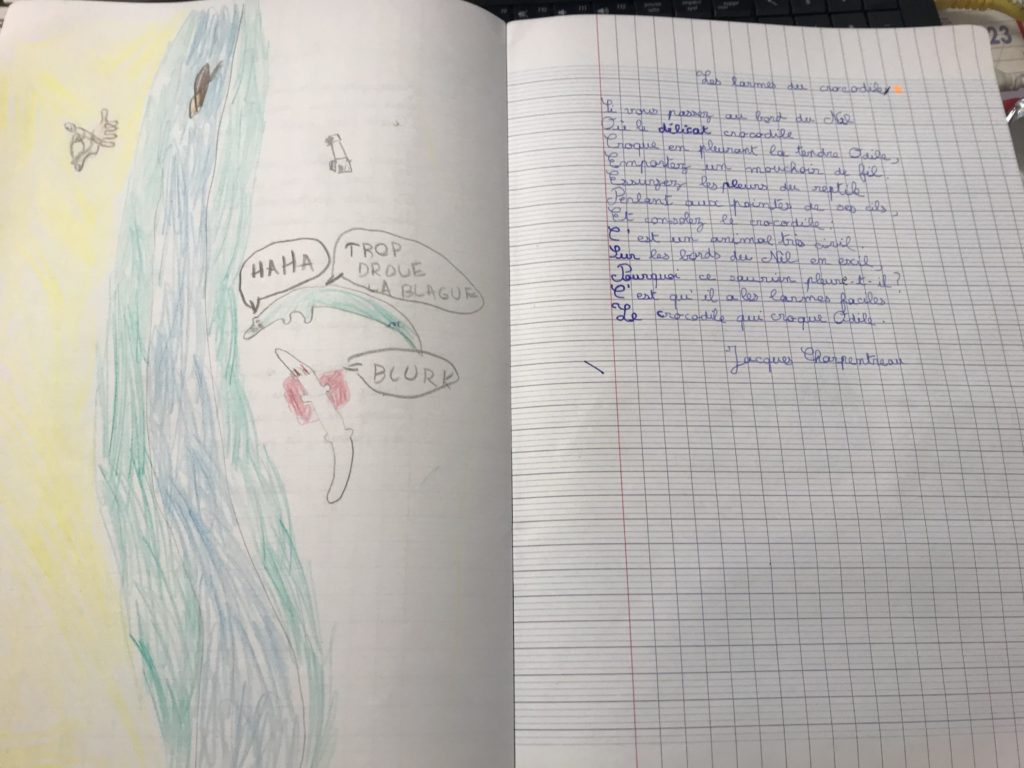 HAHA
TROP
DROLE
LA BLAGUE
BLURK
Les larmes du crocodile
Si vous passez au bord du Nil
Où le délicat crocodile
Croque en pleurant la tendre Odile,
Emportez un mouchoir de fil.
Essuyez les pleurs du reptile
Perlant aux pointes de ses cils,
Et consolez le crocodile.
C'est un animal très civil.
Sur les bords du Nil en exil,
Pourquoi ce saurien pleure-t-il?
C'est qu'il a les larmes faciles
Le crocodile qui croque Odile.
Jacques Charpentreau
23